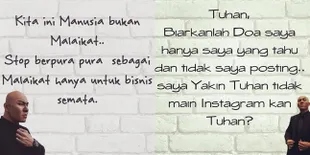 Kita ini Manusia bukan
Malaikat..
Stop berpura pura sebagai
Malaikat hanya untuk bisnis
semata.
Tuhan,
Biarkanlah Doa saya
hanya saya yang tahu
dan tidak saya posting..
saya Yakin Tuhan tidak
main Instagram kan
Tuhan?